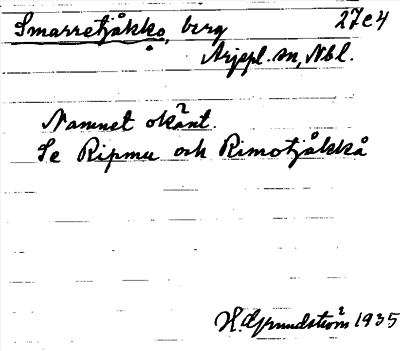 Smarretjåkko, berg 27e4
Arjepl. sn, Nbl.
Namnet okänt.
Se Ripmu och Rimotjåkkå
H. Grundström 1935